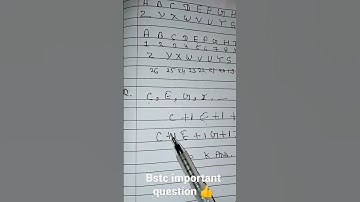 A B C D E F G H
Z Y X W V U T S
A B C D E F G H
1 2 3 4 5 6 7 8
Z Y X W V U T S
26 25 24 23 22 21 20 19
Q. C, E, G, I, ...
C + 1 E + 1 +
C + 1 E + 1 G + 1
K Ans.
Bstc important
question 👍